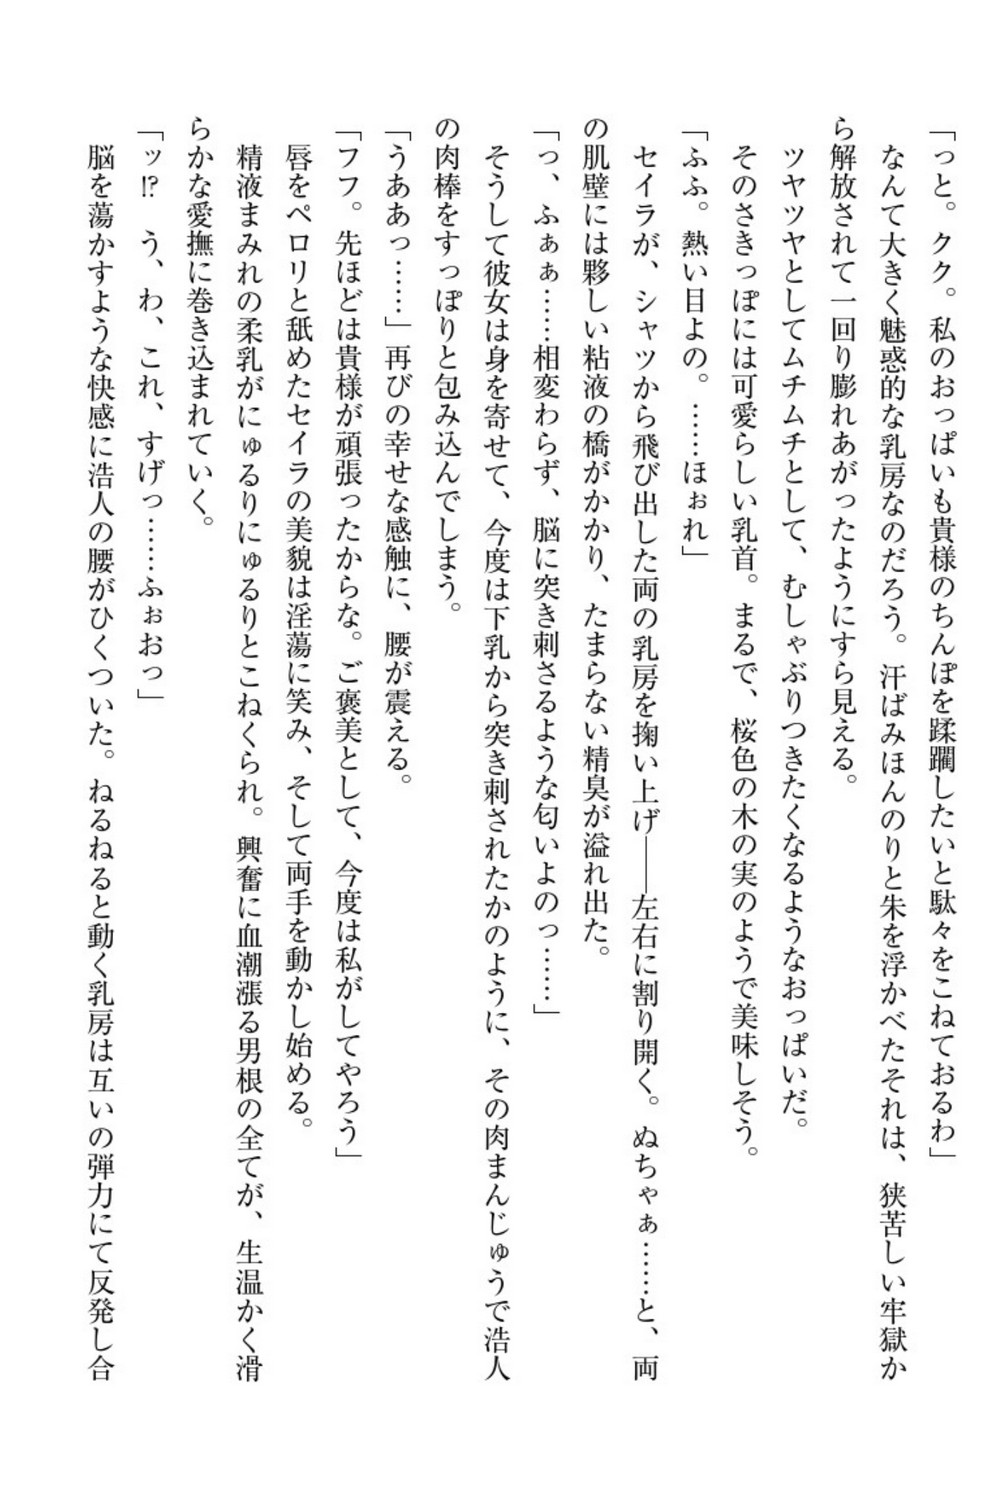 「っと。クク。私のおっぱいも貴様のちんぽを蹂躙したいと駄々をこねておるわ」
なんて大きく魅惑的な乳房なのだろう。汗ばみほんのりと朱を浮かべたそれは、狭苦しい牢獄か
ら解放されて一回り膨れあがったようにすら見える。
ツヤツヤとしてムチムチとして、むしゃぶりつきたくなるようなおっぱいだ。
そのさきっぽには可愛らしい乳首。まるで、桜色の木の実のようで美味しそう。
「ふふ。熱い目よの。……ほぉれ」
セイラが、シャツから飛び出した両の乳房を掬い上げ――左右に割り開く。ぬちゃぁ……と、両
の肌壁には夥しい粘液の橋がかかり、たまらない精臭が溢れ出た。
「っ、ふぁぁ……相変わらず、脳に突き刺さるような匂いよのっ……」
そうして彼女は身を寄せて、今度は下乳から突き刺されたかのように、その肉まんじゅうで浩人
の肉棒をすっぽりと包み込んでしまう。
「うああっ……」再びの幸せな感触に、腰が震える。
「フフ。先ほどは貴様が頑張ったからな。ご褒美として、今度は私がしてやろう」
唇をペロリと舐めたセイラの美貌は淫蕩に笑み、そして両手を動かし始める。
精液まみれの柔乳がにゅるりにゅるりとこねくられ。興奮に血潮漲る男根の全てが、生温かく滑
らかな愛撫に巻き込まれていく。
「ッ!? う、わ、これ、すげっ……ふぉおっ」
脳を蕩かすような快感に浩人の腰がひくついた。ねるねると動く乳房は互いの弾力にて反発し合